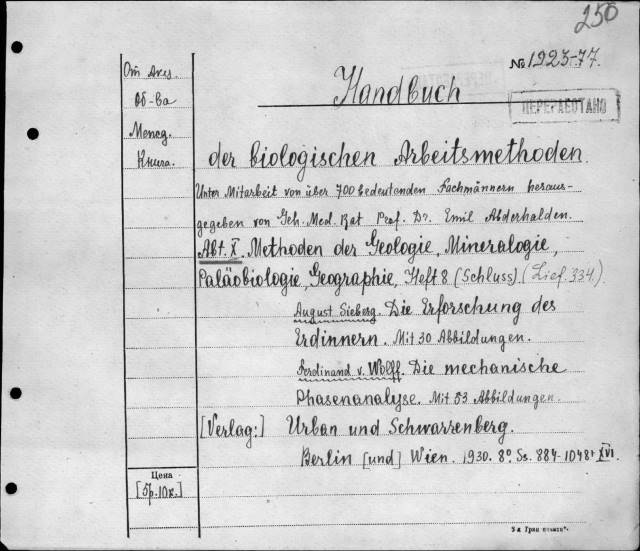 250
№ 1923-77.
Handbuch
ПЕРЕРАБОТАНО
От Акц.
Об-ва
Менед.
Книга.
der biologischen Arbeitsmethoden.
Unter Mitarbeit von über 700 bedeutenden Fachmännern heraus-
gegeben von Geh. Med. Rat Prof. Dr. Emil Abderhalden.
Abt. X. Methoden der Geologie, Mineralogie,
Paläobiologie, Geographie, Heft 8 (Schluss). (Lief. 334.)
August Sieberg. Die Erforschung des
Erdinnern. Mit 30 Abbildungen.
Ferdinand v. Wolff. Die mechanische
Phasenanalyse. Mit 53 Abbildungen.
[Verlag:] Urban und Schwarzenberg.
Berlin [und] Wien. 1930. 8° Ss. 884-1048+XVI.
Цена
[5р.10к.]